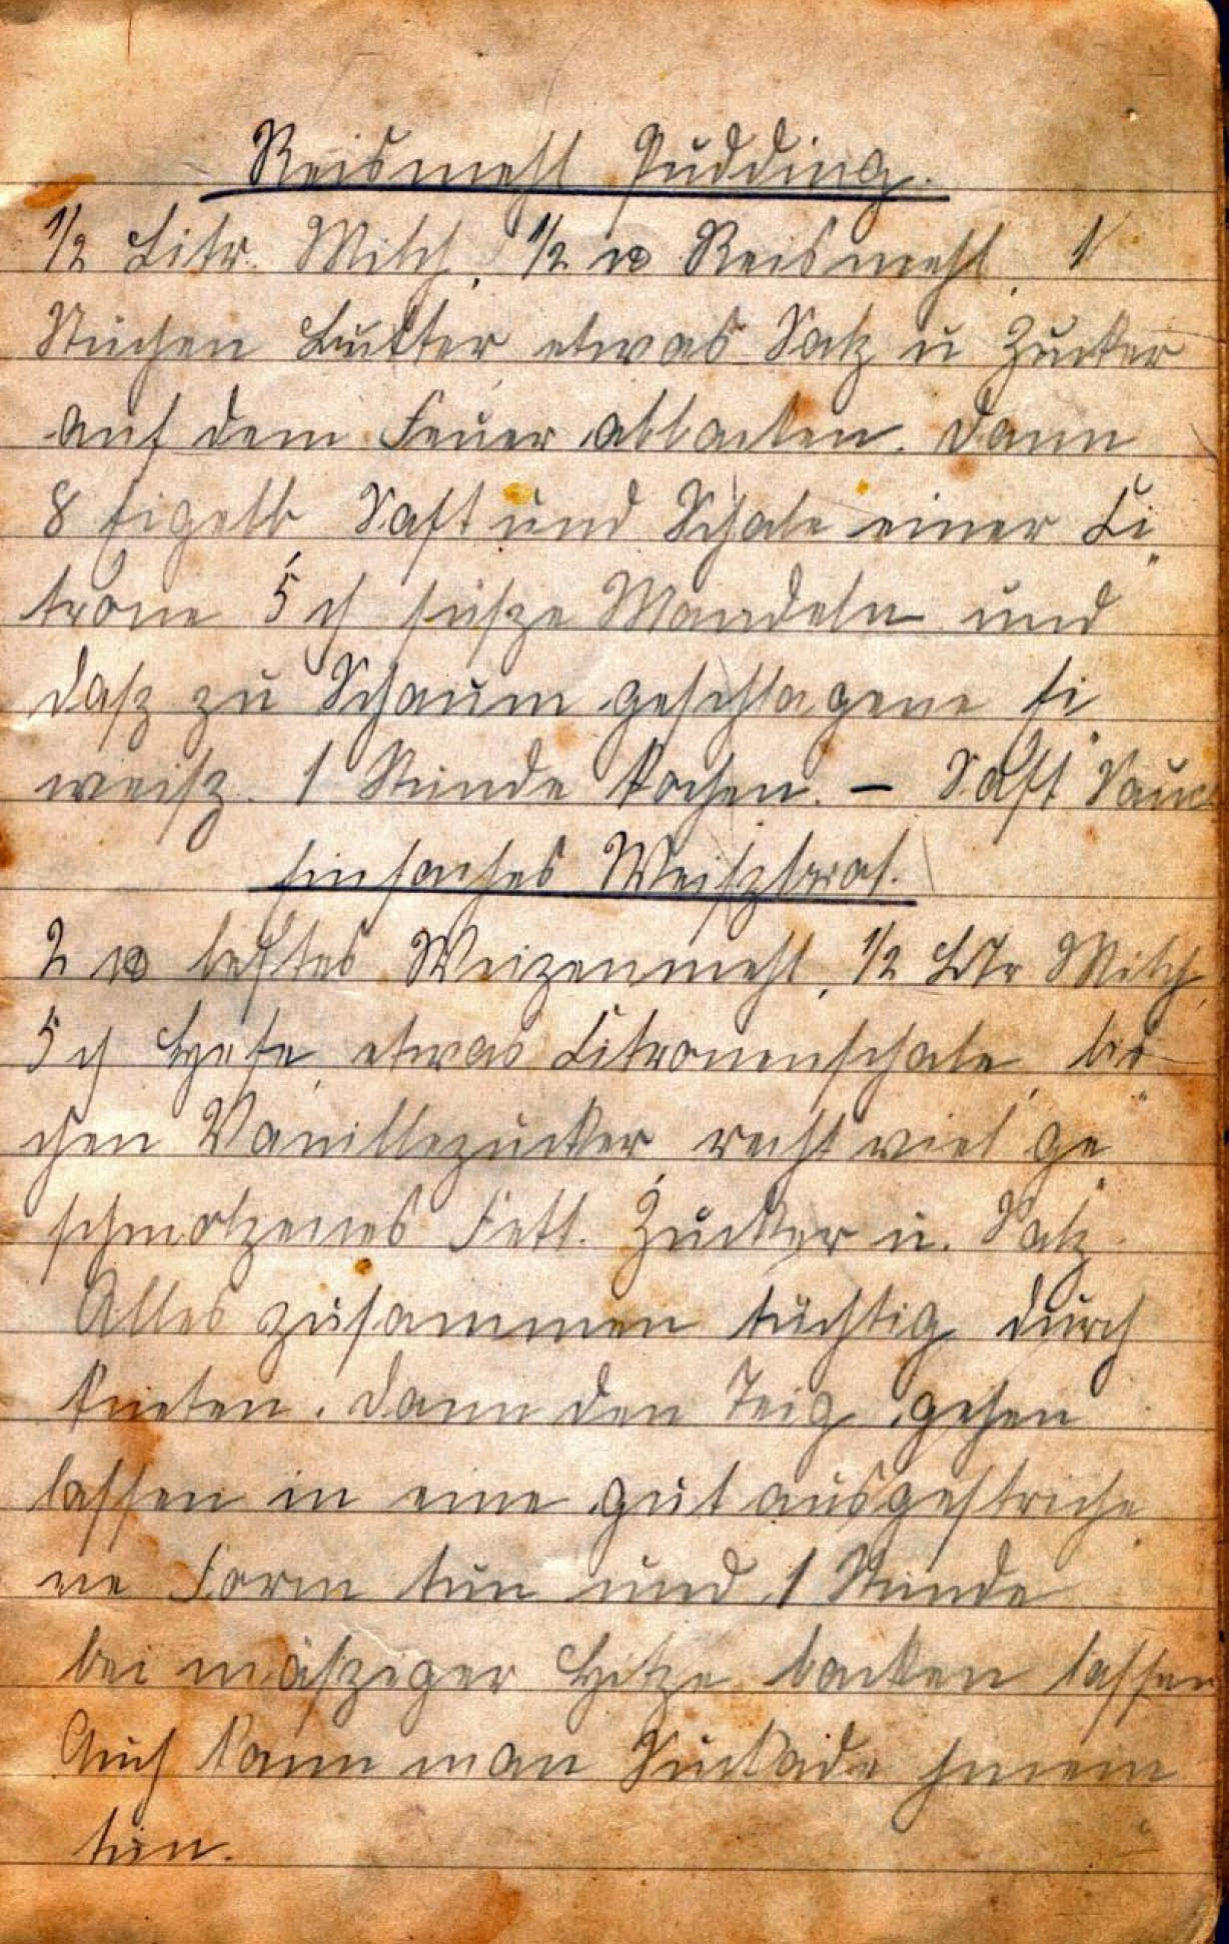 Reismehl Pudding.
1/2 Litr. Milch, 1/2 ℔ Reismehl, 1
Stüchen Butter etwas Salz u Zucker
auf dem Feuer abbacken. Dann
8 Eigelb Saft und Schale einer Ci„
trone 5 süsze Mandeln und
dasz zu Schaum geschlagene Ei„
weisz. 1 Stunde kochen. – Saft Sauce
Einfaches Weiszbrot.
2 ℔ bestes Weizenmehl, 1/2 Litr Milch,
5 Hefe, etwas Citronenschale, bis„
chen Vanillezucker, recht viel ge„
schmolzenes Fett. Zucker u. Salz.
Alles zusammen tüchtig durch
kneten. Dann den Teig gehen
lassen in eine gut ausgestriche„
ne Form tun und 1 Stunde
bei mäsziger Hitze backen lassen
Auch kann man Suckade hinein
tun.